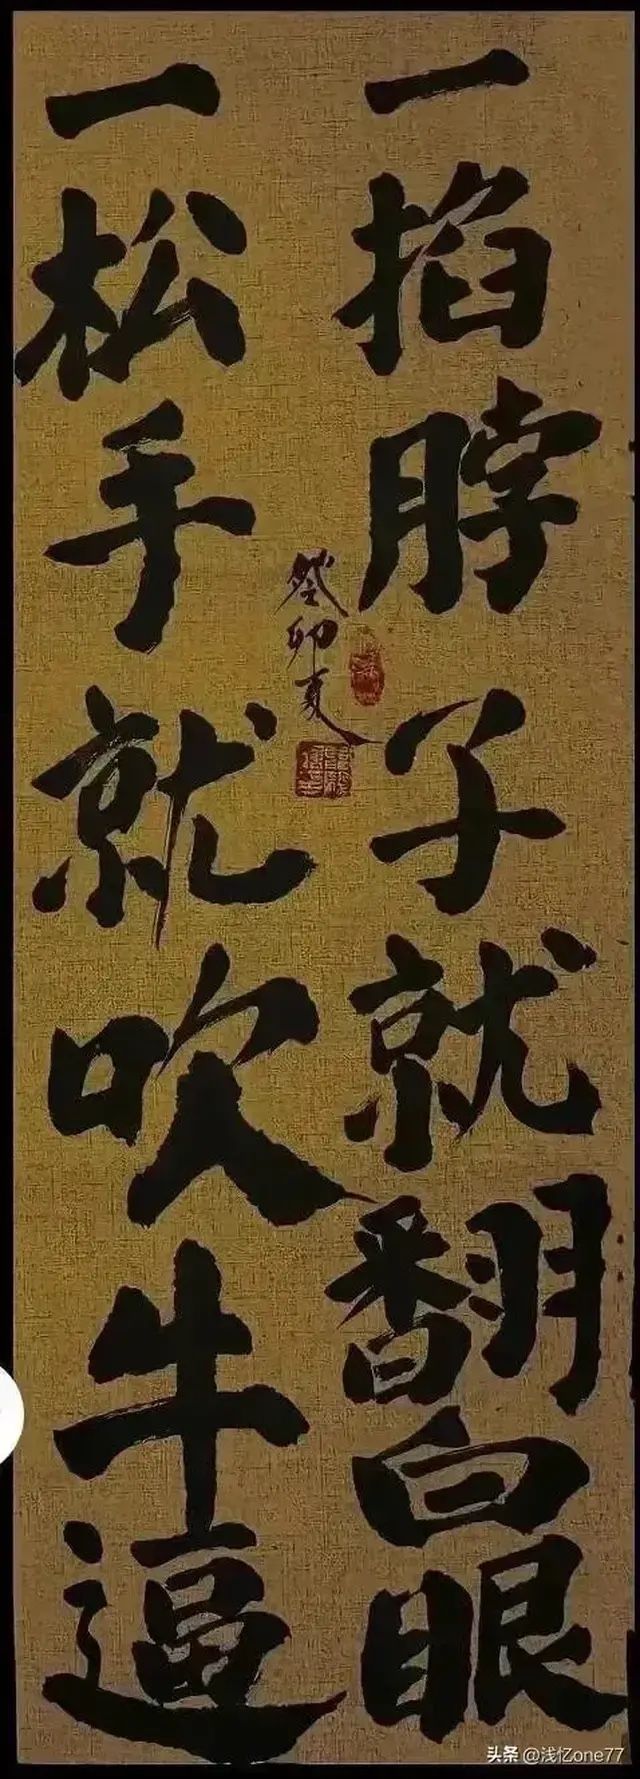 一掐脖子就翻白眼
一松手就吹牛逼
癸卯夏
头条 @浅忆one77